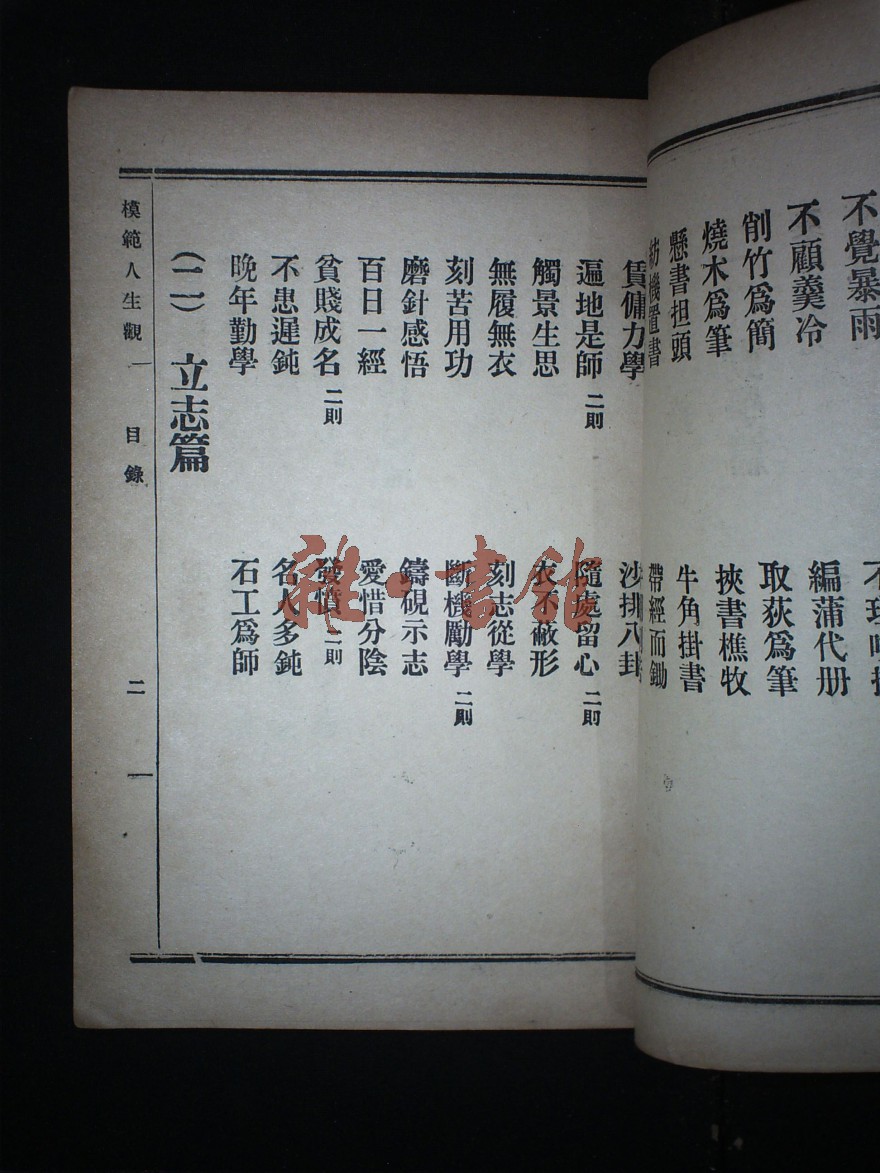 不覺暴雨
不顧羹冷　編蒲代册
削竹爲簡　取荻爲筆
燒木爲筆　挾書樵牧
懸書担頭　牛角掛書
紡機置書　帶經而鋤
賃傭力學　沙排八卦
遍地是師 二則　隨處留心 二則
觸景生思　衣不蔽形
無履無衣　刻志從學
刻苦用功　斷機勵學 二則
磨針感悟　鑄硯示志
百日一經　愛惜分陰
貧賤成名 二則　發憤 二則
不患遲鈍　名人多鈍
晚年勤學　石工爲師
（二）　立志篇
模範人生觀　目錄　二
雜·書館